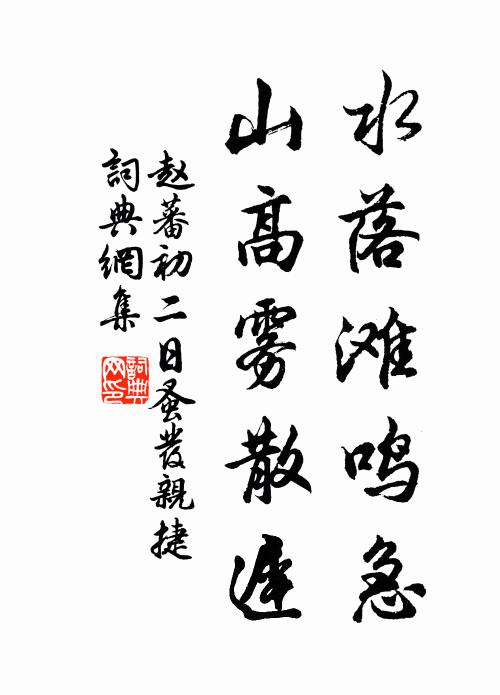 水落滩鸣急
山高雾散迟
赵蕃初二日蚤发亲捷
詞典網集
詞典
网印